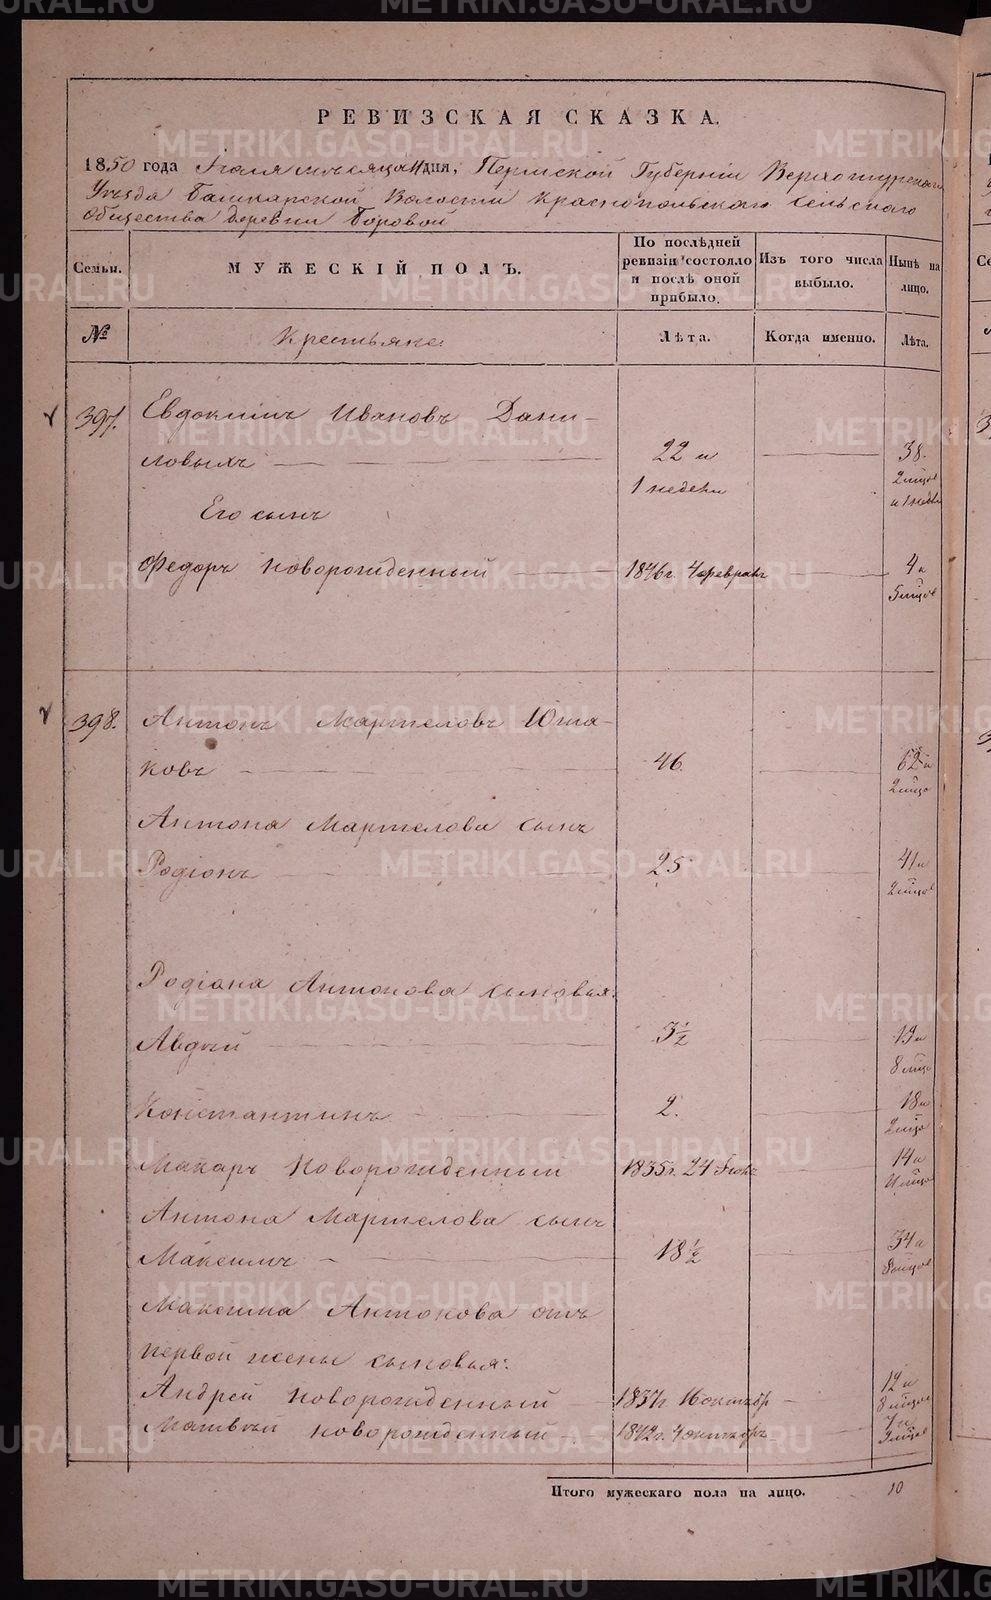 РЕВИЗСКАЯ СКАЗКА.
1850 года Іюля мѣсяца дня, Пермской Губерніи Верхотурскаго
Уѣзда Башкарской Волости Краснопольскаго Сельскаго
Общества деревни Боровой
Семьи. МУЖЕСКІЙ ПОЛЪ. По послѣдней ревизіи состояло и послѣ оной прибыло. Изъ того числа выбыло. Нынѣ на лицо.
№ Крестьяне Лѣта. Когда именно. Лѣта.
397. Евдокимъ Ивановъ Дани-
ловыхъ 22 и 1 недели 38. 2 мцов и 1 недел
Его сынъ
Федоръ новорожденный 1846г. 4 феврал 4 и 5 мцов
398. Антонъ Мартеловъ Юша-
ковъ 46. 62 и 2 мцо
Антона Мартелова сынъ
Родіонъ 25 41 и 2 мцов
Родіона Антонова сыновья:
Авдѣй 3½ 19 и 8 мцо
Константинъ 2. 18 и 2 мцо
Макаръ Новорожденный 1835г. 24 14 и
Антона Мартелова сынъ
Максимъ 18½ 34 и 8 мцов
Максима Антонова отъ
первой жены сыновья:
Андрей новорожденный 1837г. 16 октябр 12 и 8 мцов
Матвѣй новорожденный 1842г. 4 октябръ 7 и 9 мцов
Итого мужескаго пола на лицо. 10
METRIKI.GASO-URAL.RU